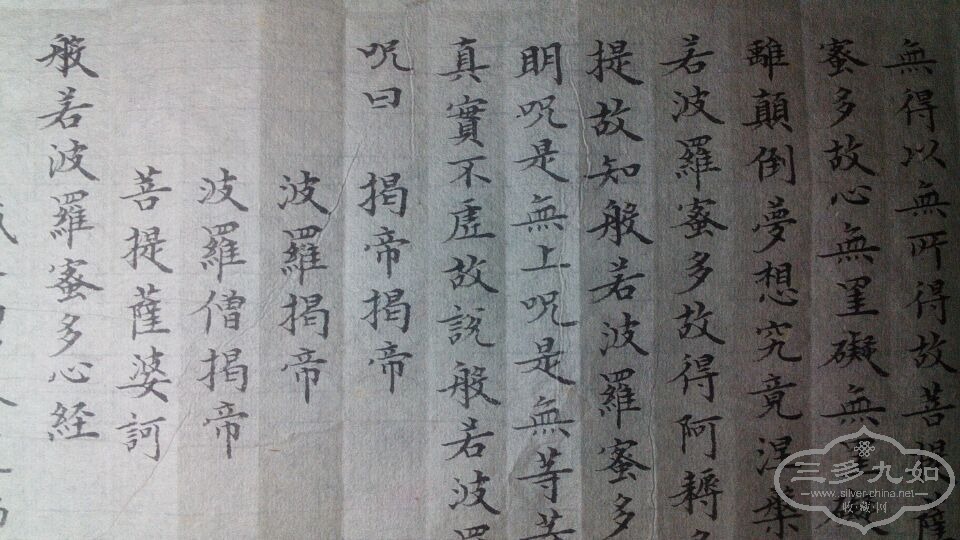 無得以無所得故菩提薩
蜜多故心無罣礙無罣礙
離顛倒夢想究竟涅槃
若波羅蜜多故得阿耨多
提故知般若波羅蜜多
明呪是無上呪是無等等
真實不虛故説般若波羅
呪曰 揭帝揭帝
波羅揭帝
波羅僧揭帝
菩提薩婆訶
般若波羅蜜多心経
三多九如
www.silver-china.net
收藏网